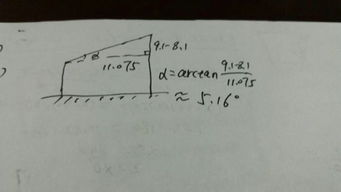 9.1-8.1
α
11.075
α=arctan 9.1-8.1/11.075
≈ 5.16°